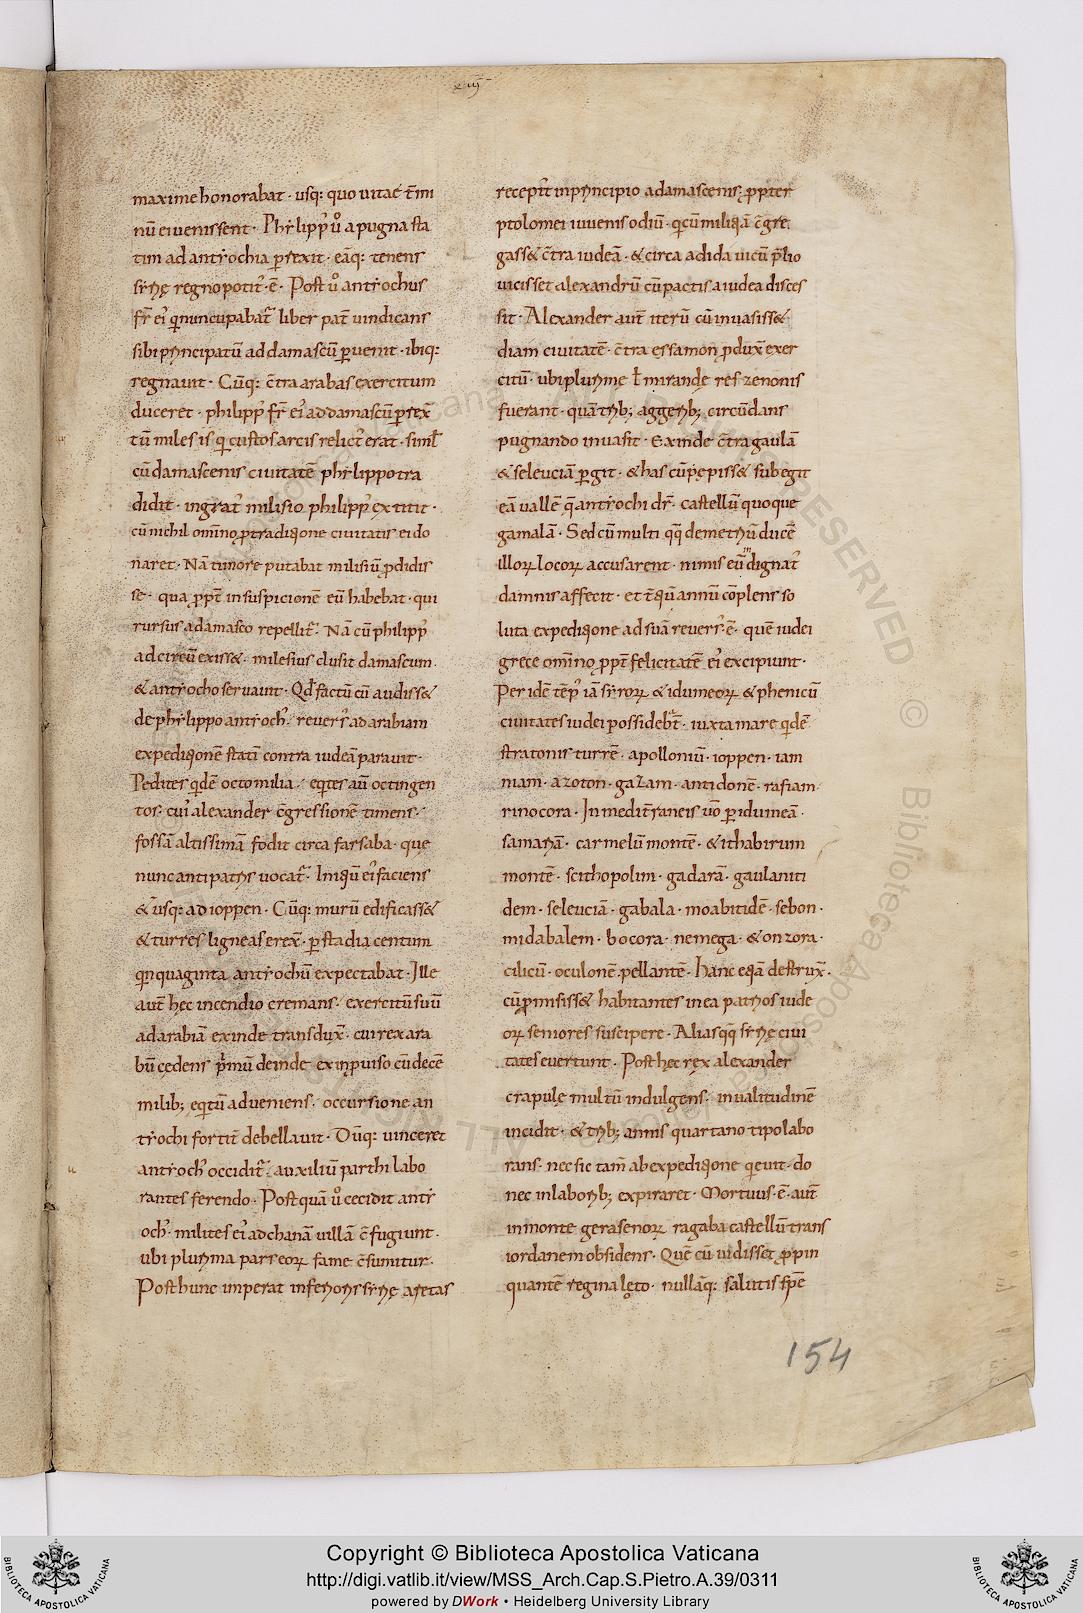 xiii
maxime honorabat · usq: quo uitae t̄mi
nū ei uenissent · Phylipp' ū a pugna sta
tim ad antiochia p̄rexit · eāq: tenens
syrię regno potit' · ē · Post ū antiochus
fr̄ ei' qui nuncupabat̄ liber pat̄ uindicans
sibi principatū ad damascū puenit · ibiq:
regnauit · Cūq: c̄tra arabas exercitum
duceret · philipp' fr̄ ei' ad damascū prex̄
tū miles is qui custos arcis relict' erat · simł
cū damascenis ciuitatē phylippo tra
didit · ingrat' milisio philipp' extitit ·
cū nichil om̄ino p traditione ciuitatis ei do
naret · Nā timore putabat milisiū pdidis
se · qua ppt̄ in suspicionē eū habebat · qui
rursus a damasco repellit̄ · Nā cū philipp'
ad circū exiss& · milesius clusit damascum ·
& antiocho seruauit · Qđ factū cū audiss&
de phylippo antioch' · reuers' ad arabiam
expeditionē statī contra iudeā parauit ·
Pedites qidē octo milia · eqites aū octingen
tos · cui' alexander c̄gressionē timens ·
fossā altissimā fodit circa farsaba · que
nunc antipatris uocat̄ · Iniqū ei' faciens
& usq: ad ioppen · Cūq: murū edificass&
& turres ligneas erex̄ · p stadia centum
quinquaginta antiochū expectabat · Ille
aut̄ hęc incendio cremans · exercitū suū
ad arabiā exinde transdux̄ · cui rex ara
bū cędens p'mū deinde ex inpuiso cū decē
milib; eqitū adueniens · occursione an
tiochi fortit̄ debellauit · Dūq: uinceret
antioch' occidit̄ · auxiliū parthi labo
rantes ferendo · Postquā ū cecidit anti
och' · milites ei' ad chanā uillā c̄fugiunt ·
ubi plurima pars eorꝝ fame c̄sumitur ·
Post hunc imperat inferioris syrię aretas
recept' in principio a damascenis · ppter
ptolomei iuuenis odiū · qi cū militiā c̄gre
gass& c̄tra iudeā · & circa adida uicū p̄lio
uicisset alexandrū cū pactis a iudea disces
sit · Alexander aut̄ iterū cū inuasiss&
diam ciuitatē · c̄tra essamon pdux̄ exer
citū · ubi plurimę ł mirandę res zenonis
fuerant · quā trib; aggerib; circūdans
pugnando inuasit · Exinde c̄tra gaulā
& seleuciā pgit · & has cū pępiss& subegit
eā uallē q̄ antiochi dr̄ · castellū quoque
gamalā · Sed cū multi qq̄ demetriū ducē
illorꝝ locorꝝ accusarent · nimis eū īdignat'
damnis affecit · et t̄tiū annū cōplens so
luta expeditione ad suā reuers' · ē · quē iudei
grece om̄ino ppt̄ felicitatē ei' excipiunt ·
Per idē tēp' iā syrorꝝ & idumeorꝝ & phenicū
ciuitates iudei possidebāt · iuxta mare qidē
stratonis turrē · apolloniū · ioppen · iam
niam · azoton · gazam · antidonē · rafiam
rinocora · In medit̄raneis uō p idumeā ·
samariā · carmelū montē · & ithabirum
montē · scithopolim · gadarā · gaulaniti
dem · seleuciā · gabala · moabitidē · sebon ·
midabalem · bocora · nemega · & onzora ·
ciliciū · oculonē · pellantē · hanc eqā destrux̄ ·
cū pmisiss& habitantes in ea patrios iude
orꝝ seniores suscipere · Alias qq̄ syrię ciui
tates euertunt · Post hęc rex alexander
crapulę multū indulgens · in ualitudinē
incidit · & trib; annis quartano tipo labo
rans · nec sic tam̄ ab expeditione qieuit · do
nec in laborib; expiraret · Mortuus · ē · aut̄
in monte gerasenorꝝ ragaba castellū trans
iordanem obsidens · Quē cū uidisset p pin
quantē regina lęto · nullaq: salutis spē
154
Copyright © Biblioteca Apostolica Vaticana
http://digi.vatlib.it/view/MSS_Arch.Cap.S.Pietro.A.39/0311
powered by DWork • Heidelberg University Library